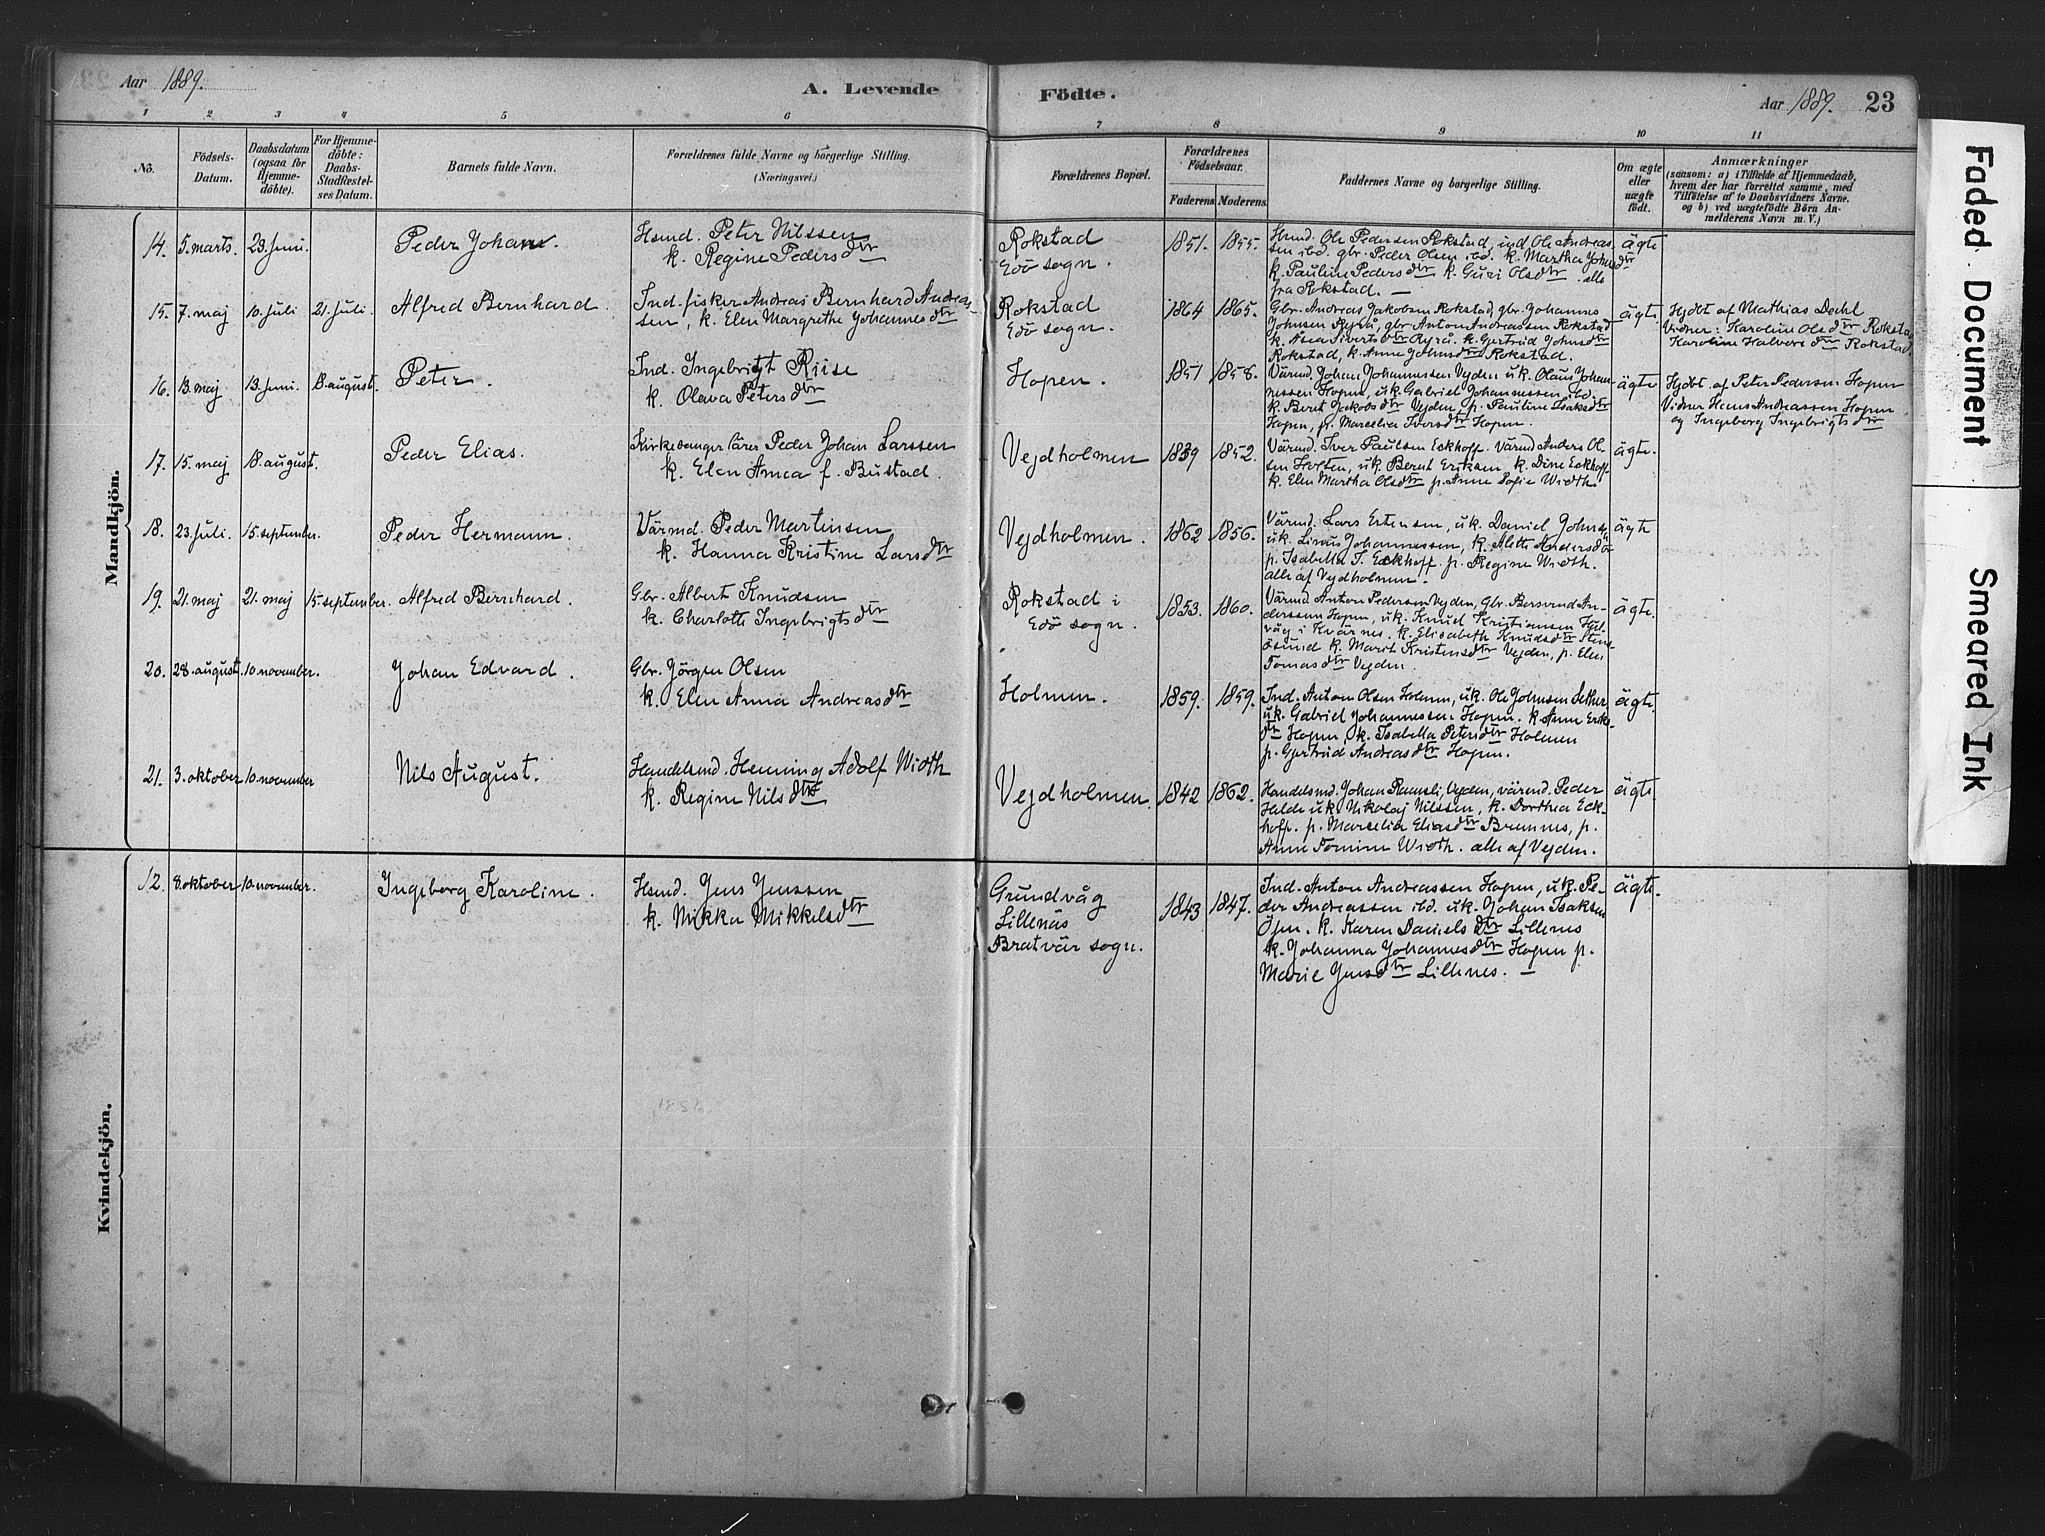 Aar 1889.
A. Levende Födte.
Aar 1889. 23
1 2 3 4 5 6 7 8 9 10 11
No.
Födsels-
Datum.
Daabsdatum
(ogsaa for
Hjemme-
döbte).
For Hjemme-
döbte:
Daabs-
Stadfæstel-
ses Datum.
Barnets fulde Navn.
Forældrenes fulde Navne og borgerlige Stilling.
(Næringsvei.)
Forældrenes Bopæl.
Forældrenes
Födselsaar.
Faderens. Moderens.
Faddernes Navne og borgerlige Stilling.
Om ægte
eller
uægte
födt.
Anmærkninger
(saasom: a) i Tilfælde af Hjemmedaab,
hvem der har forrettet samme, med
Tilföielse af to Daabsvidners Navne.
og b) ved uægtefödte Börn An-
melderens Navn m. V.)
Mandkjön.
14. 5. marts. 23. Juni.
Peder Johan.
Hsmd. Peter Nilssen
k. Regine Pedersdtr
Rokstad
Edö sogn.
1851. 1855.
Hsmd. Ole Pedersen Rokstad, ind. Ole Andreas-
sen ibd. gbr. Peder Olsen ibd. k. Martha Johnsdtr
k. Pauline Pedersdtr k. Guri Olsdtr. alle
fra Rokstad. —
ägte
15. 7. maj 10. juli 21. juli.
Alfred Bernhard.
Ind. fisker Andreas Bernhard Andreas-
sen, k. Elen Margrethe Johannesdtr
Rokstad
Edö sogn.
1864 1865.
Gbr. Andreas Jakobsen Rokstad, gbr. Johannes
Johnsen Ryrå, gbr. Anton Andreassen Rokstad
k. Åsea Sivertsdtr Ryrå. k. Gertrud Johnsdtr
Rokstad, k. Anne Johnsdtr Rokstad.
ägte.
Hjdbt af Mathias Dahl
Vidner: Karoline Olsdtr Rokstad
Karoline Halvorsdtr Rokstad
16. 13. maj 13. Juni. 18. august.
Peter.
Ind. Ingebrigt Riise
k. Olava Petersdtr
Hopen.
1851 1858.
Värmd. Johan Johannessen Vejden u.k. Olaus Johan-
nessen Hopen, u.k. Gabriel Johannessen ibd.
k. Berit Jakobsdtr Vejden, p. Pauline Isaksdtr
Hopen, p. Marcelia Iversdtr Hopen.
ägte
Hjdbt. af Peter Pedersen Hopen
Vidner Hans Andreassen Hopen
og Ingeborg Ingebrigtsdtr
17. 15. maj 18. august.
Peder Elias.
Kirkesanger lärer Peder Johan Larssen
k. Elen Amea f. Bustad.
Vejdholmen
1839 1852.
Värmd. Iver Paulsen Eckhoff. Värmd Anders Ol-
sen Holten, u.k. Bernt Eriksen, k. Dine Eckhoff
k. Elen Martha Olsdtr p. Anne Sofie Wioth.
ägte.
18. 23. juli. 15. september.
Peder Hermann.
Värmd. Peder Martinsen
k. Hanna Kristine Larsdtr
Vejdholmen.
1862 1856.
Värmd. Lars Estensen, u.k. Daniel Johnsen
u.k. Linus Johannessen, k. Alette Andersdtr
p. Isabella T. Eckhoff. p. Regine Wioth.
alle af Vejdholmen.
ägte
19. 21. maj 21. maj 15. september.
Alfred Bernhard.
Gbr. Albert Knudsen
k. Charlotte Ingebrigtsdtr
Rokstad i
Edö sogn.
1853. 1860.
Värmd Anton Pedersen Vejden, Gbr. Bersvend An-
derssen Hopen, u.k. Knud Kristiansen
våg i Kvärnes. k. Elisabeth Knudsdtr
ösund k. Marit Kristensdtr Vejden, p. Elen
Tomasdtr Vejden.
ägte.
20. 28. august. 10. november.
Johan Edvard.
Gbr. Jörgen Olsen
k. Elen Anna Andreasdtr
Holmen.
1859. 1859.
Ind. Anton Olsen Holmen, u.k. Ole Johnsen Sether
u.k. Gabriel Johannessen Hopen. k. Anne Eriks-
dtr Hopen, k. Isabella Petersdtr Holmen
p. Gjertrud Andreasdtr Hopen.
ägte.
21. 3. oktober 10. november
Nils August.
Handelsmd. Henning Adolf Wioth
k. Regine Nilsdtr
Vejdholmen.
1842 1862.
Handelsmd. Johan Ramsli, Vejden, värmd. Peder
Helde u.k. Nikolaj Nilssen, k. Dorthea Eck-
hoff. p. Marcelia Eliasdtr Bremnes, p.
Anne Tomine Wioth. alle af Vejden.
ägte.
Kvindekjön.
12. 8. oktober 10. november.
Ingeborg Karoline.
Hsmd. Jens Jenssen
k. Mikka Mikkelsdtr
Grundvåg
Lillenäs
Bratvär sogn.
1843 1847.
Ind. Anton Andreassen Hopen, u.k. Pe-
der Andreassen ibd. u.k. Johan Isaksen
Öjen. k. Karen Danielsdtr Lillenes
k. Johanna Johannesdtr Hopen p.
Marie Jensdtr Lillenes. —
ägte.
Faded Document
Smeared Ink